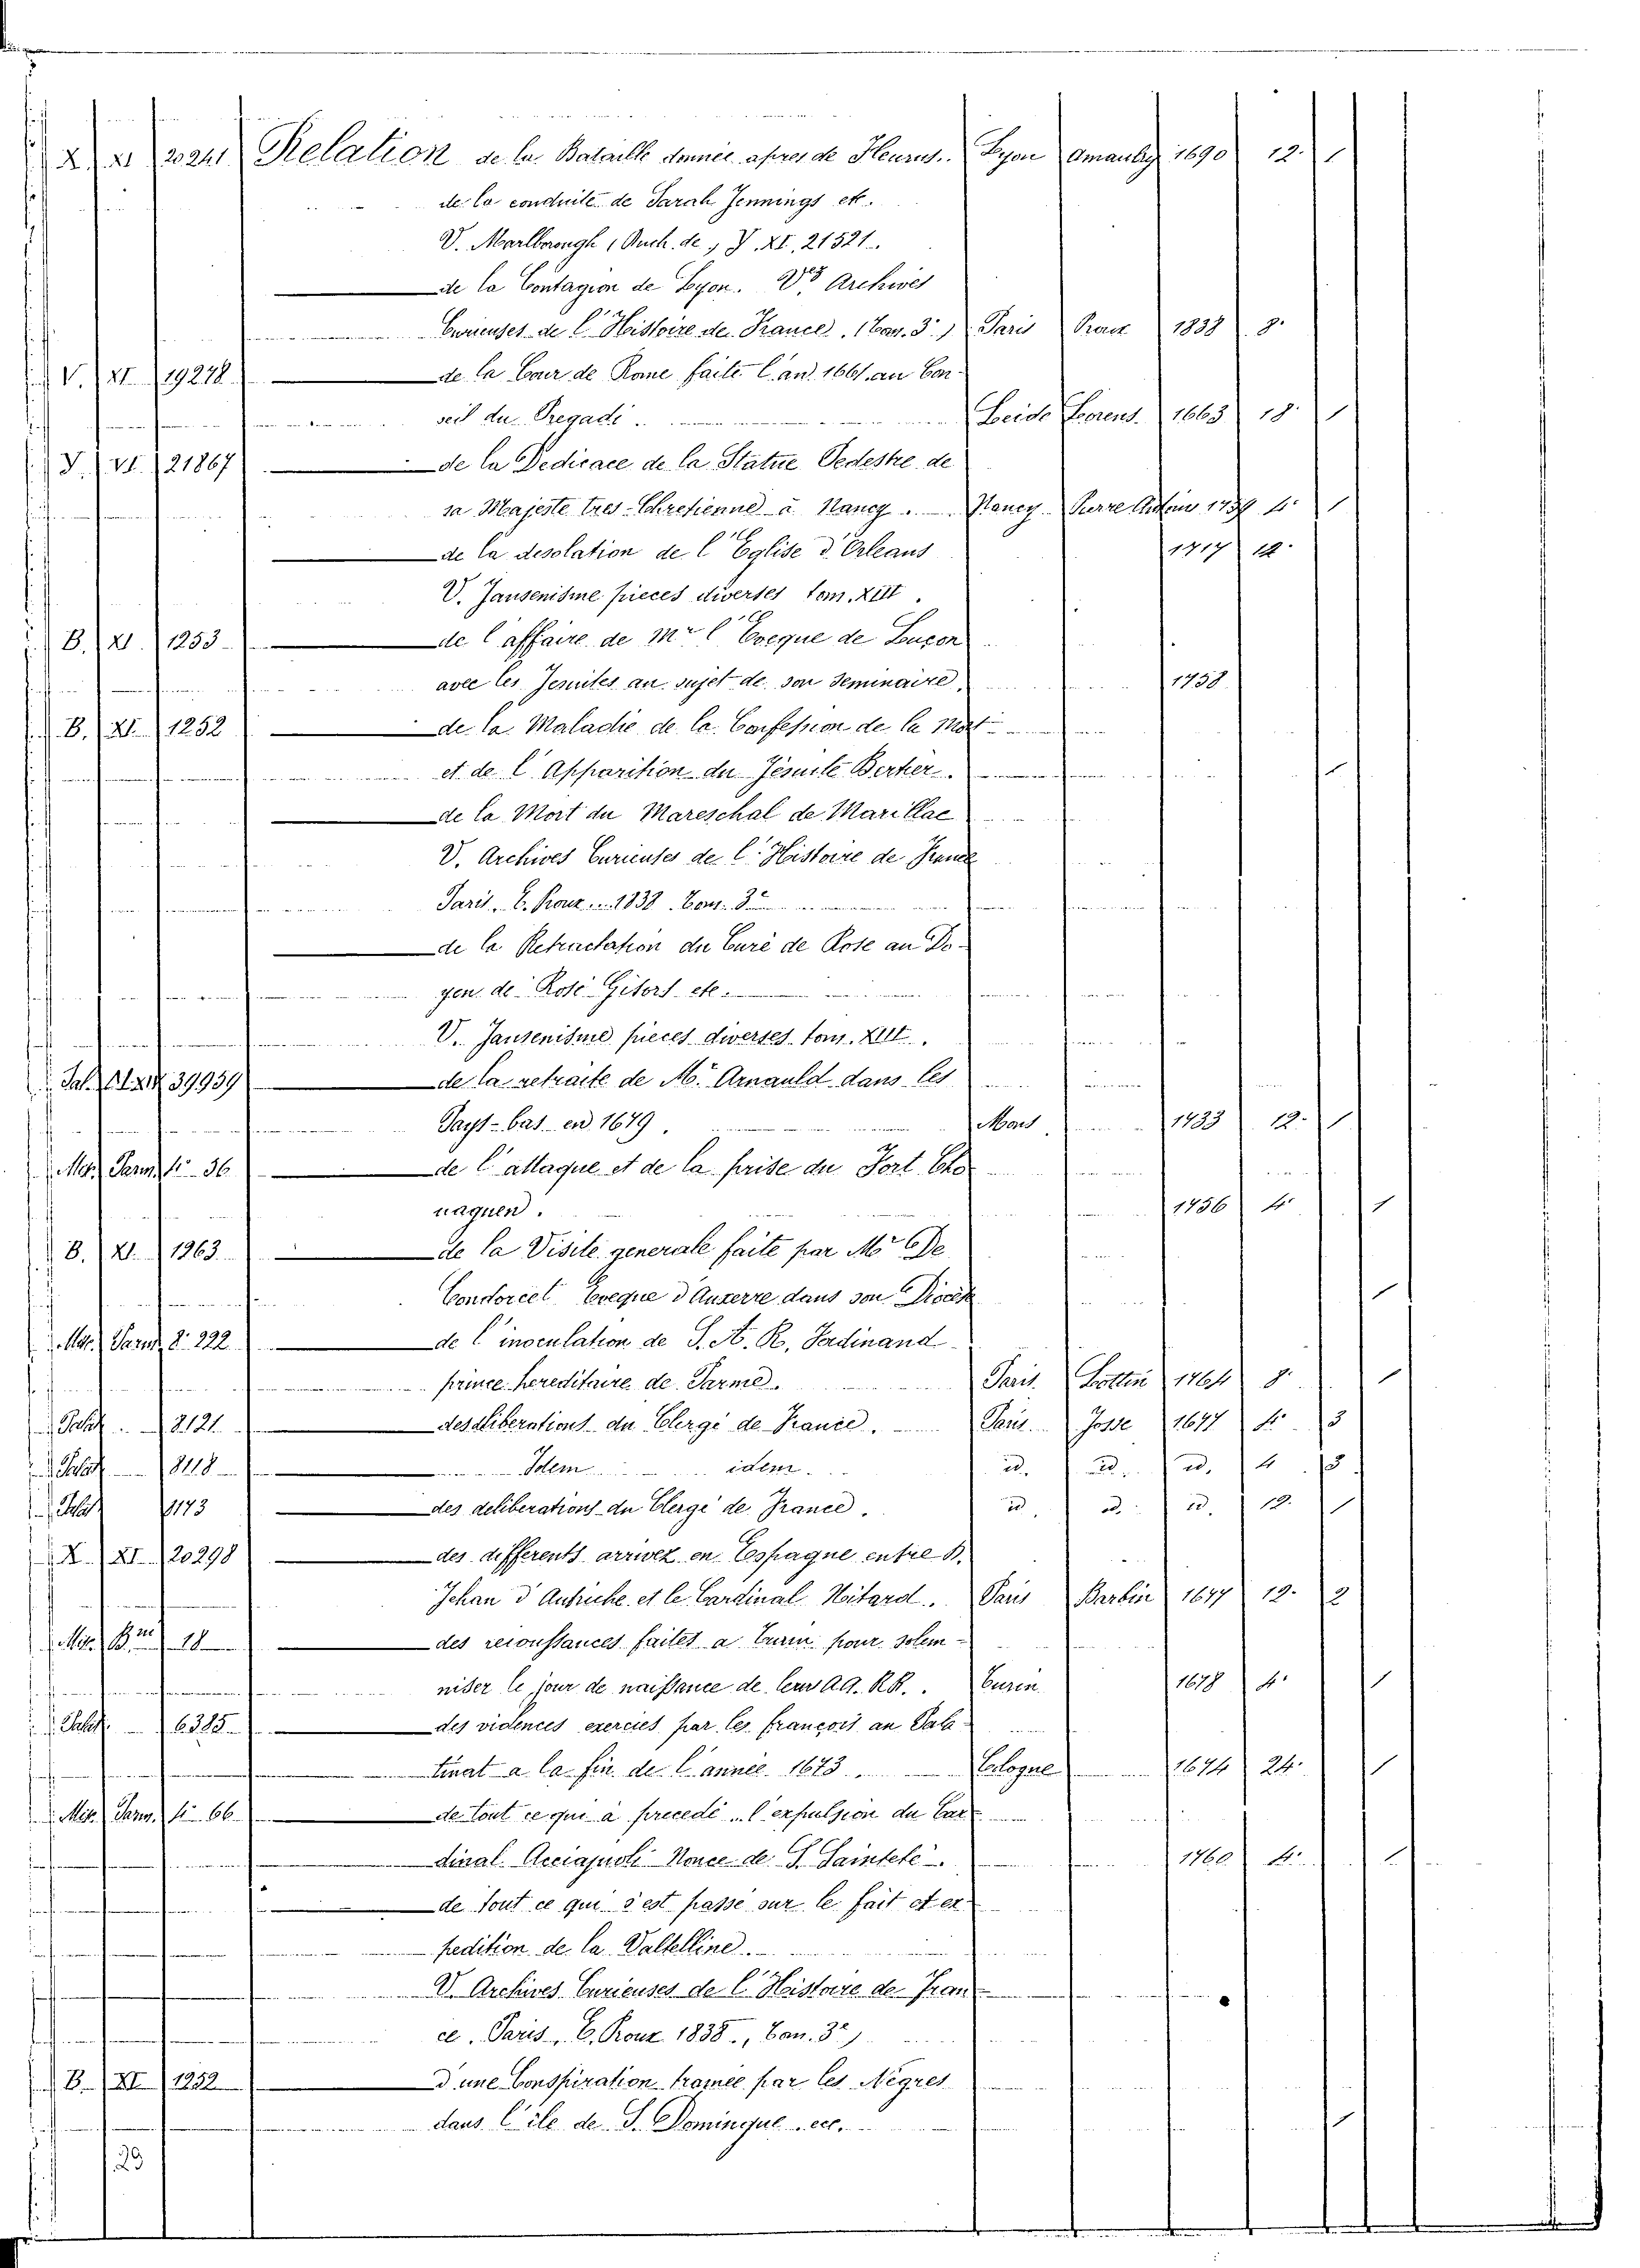 X. XI 20241 Relation de la Bataille donnée apres de Fleurus. Lyon Amaulry 1690 12. 1
de la conduite de Sarah Jennings etc.
V. Marlborough, Duch. de, Y. XI, 21521.
de la Contagion de Lyon. V. Archives
Curieuses de l'Histoire de France. (Tom. 3.) Paris Roux 1838 8.
V. XI 19278 de la Cour de Rome faite l'an 1661 au Con-
seil du Pregadi. Leide Lorens. 1663 18. 1
Y. VI. 21867 de la Dedicace de la Statue Pedestre de
sa Majeste tres-Chretienne à Nancy. Nancy Pierre Antoine 1739 4. 1
de la desolation de l'Eglise d'Orleans 1717 12.
V. Jansenisme pieces diverses tom. XIII.
B. XI. 1253 de l'affaire de Mr l'Eveque de Luçon
avec les Jesuites au sujet de son Seminaire. 1738
B. XI. 1252 de la Maladie de la Confession de la Mort
et de l'Apparition du Jesuite Bertier. 1
de la Mort du Mareschal de Marillac
V. Archives Curieuses de l'Histoire de France
Paris, E. Roux. 1838. Tom. 3e
de la Retractation du Curé de Rose au Do-
yen de Rose Gitors etc.
V. Jansenisme pieces diverses tom. XIII.
Pal. 39939 de la retraite de Mr. Arnauld dans les
Pays-bas en 1679. Mons 1733 12. 1
Mis. Parm. 4. 36 de l'attaque et de la prise du Fort Cho
uaguen. 1756 4. 1
B. XI. 1263 de la Visite generale faite par Mr De
Condorcet Eveque d'Auxerre dans son Diocese 1
Mis. Parm. 8. 222 de l'inoculation de S. A. R. Ferdinand
prince hereditaire de Parme. Paris. Lottin 1764 8. 1
Palat. 8121 des deliberations du Clergé de France. Paris. Josse 1677 4. 3
Palat. 8118 Idem idem. id. id. id. 4 3
Palat. 1173 des deliberations du Clergé de France. id. id. id. 12. 1
X. XI. 20298 des differents arrivez en Espagne entre D.
Jehan d'Autriche et le Cardinal Nitard. Paris Barbin 1677 12. 2
Mis. B.ni 18 des reioussances faites a Turin pour solem-
niser le jour de naissance de leur AA. RR. Turin 1678 4. 1
Palat. 6385 des violences exercies par les françois au Pala-
tinat a la fin de l'année 1673. Cologne 1674 24. 1
Mis. Parm. 4. 66 de tout ce qui a precedé l'expulsion du Car-
dinal Acciajuoli Nonce de S. Sainteté. 1760 4. 1
de tout ce qui s'est passé sur le fait et ex
pedition de la Valtelline.
V. Archives Curieuses de l'Histoire de Fran-
ce. Paris, E. Roux 1838., Tom. 3e)
B. XI 1252 D'une Conspiration tramee par les Négres
dans l'ile de S. Domingue. ecc. 1
29